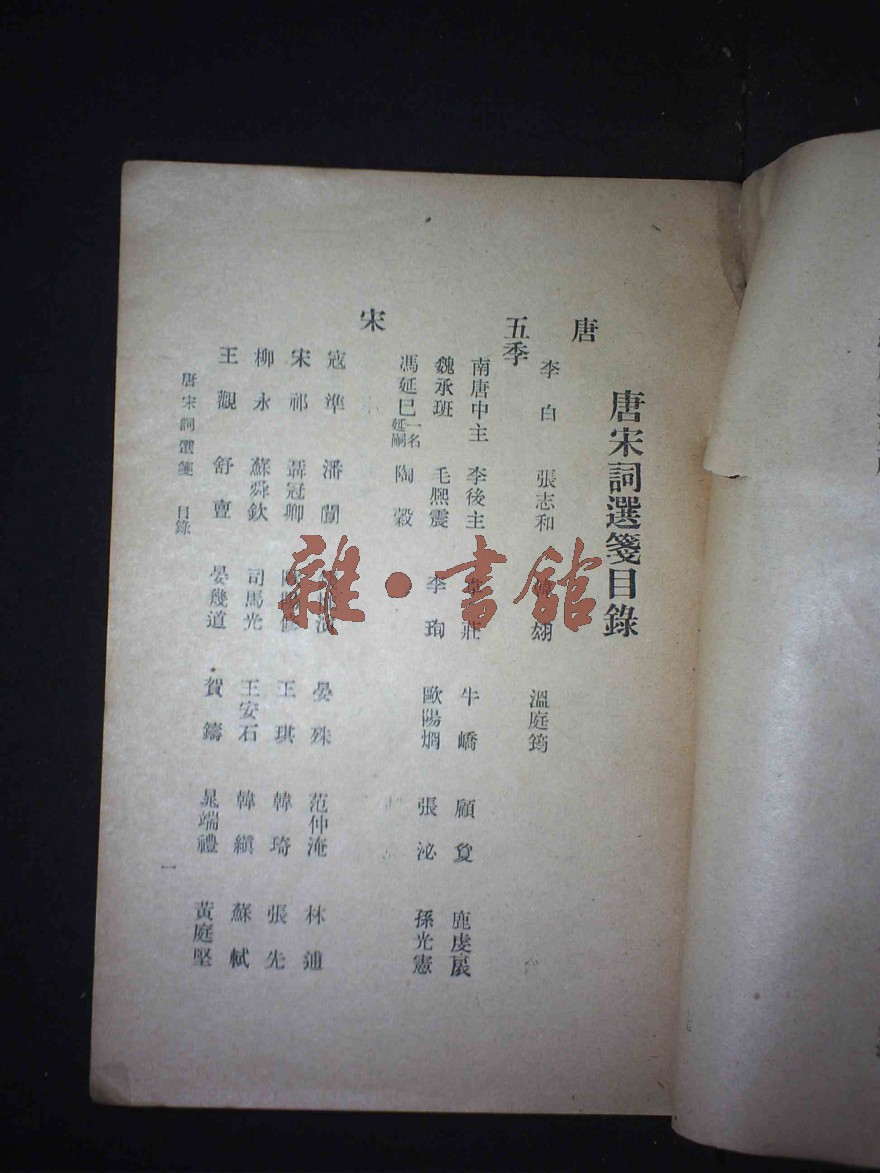 唐宋詞選箋目錄
唐
李白 張志和 翃 溫庭筠
五季
南唐中主 李後主 韋莊 牛嶠 顧敻 鹿虔扆
魏承班 毛熙震 李珣 歐陽烱 張泌 孫光憲
馮延巳一名延嗣 陶穀
宋
寇準 潘閬 晏殊 范仲淹 林逋
宋祁 聶冠卿 王琪 韓琦 張先
柳永 蘇舜欽 司馬光 王安石 韓縝 蘇軾
王觀 舒亶 晏幾道 賀鑄 晁端禮 黃庭堅
唐宋詞選箋 目錄
一
雜·書館